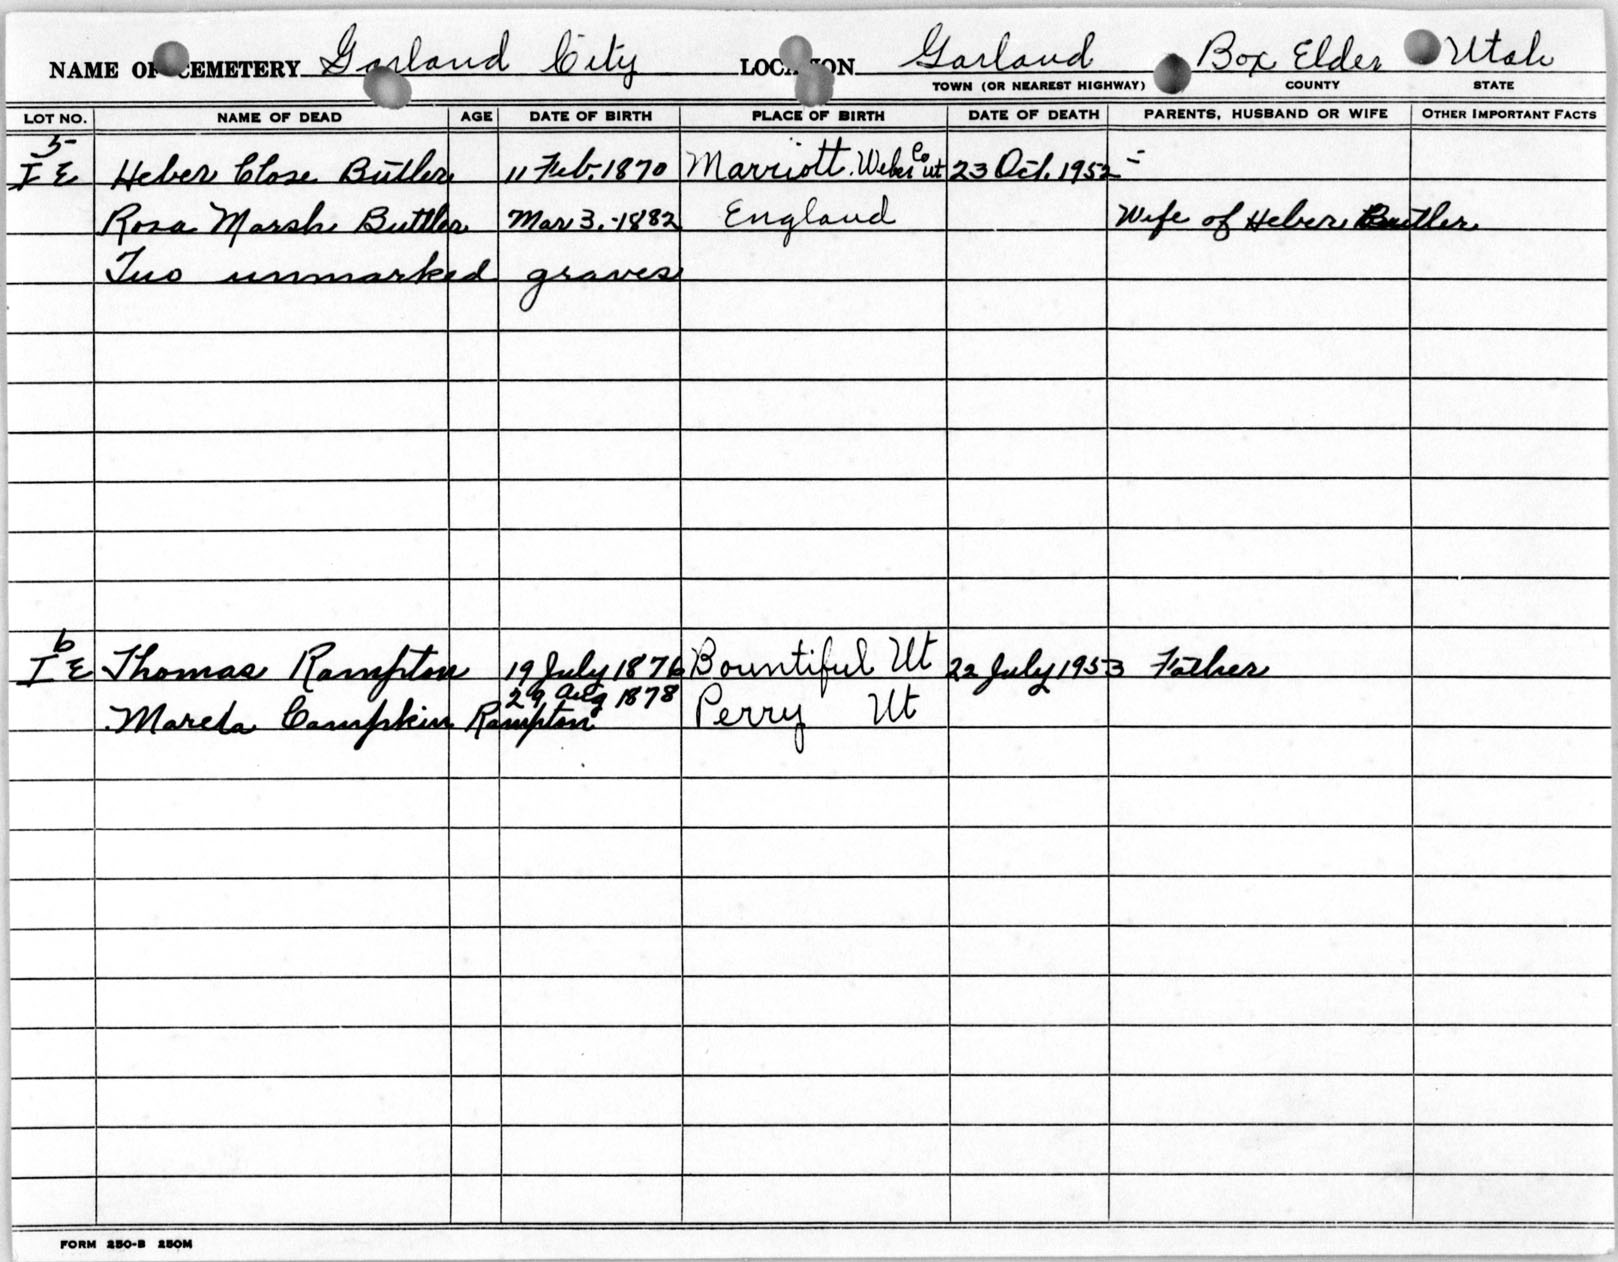 NAME OF CEMETERY Garland City LOCATION Garland Box Elder Utah
TOWN (OR NEAREST HIGHWAY) COUNTY STATE
LOT NO. NAME OF DEAD AGE DATE OF BIRTH PLACE OF BIRTH DATE OF DEATH PARENTS, HUSBAND OR WIFE OTHER IMPORTANT FACTS
5
I E Heber Close Butler 11 Feb. 1870 Marriott. Weber Co Ut 23 Oct. 1952 =
Rosa Marsh Buttler Mar 3. -1882 England Wife of Heber Butler
Two unmarked graves
6
I E Thomas Rampton 19 July 1876 Bountiful Ut 22 July 1953 Father
29 Aug 1878
Campkin Rampton Perry Ut
FORM 250-B 250M